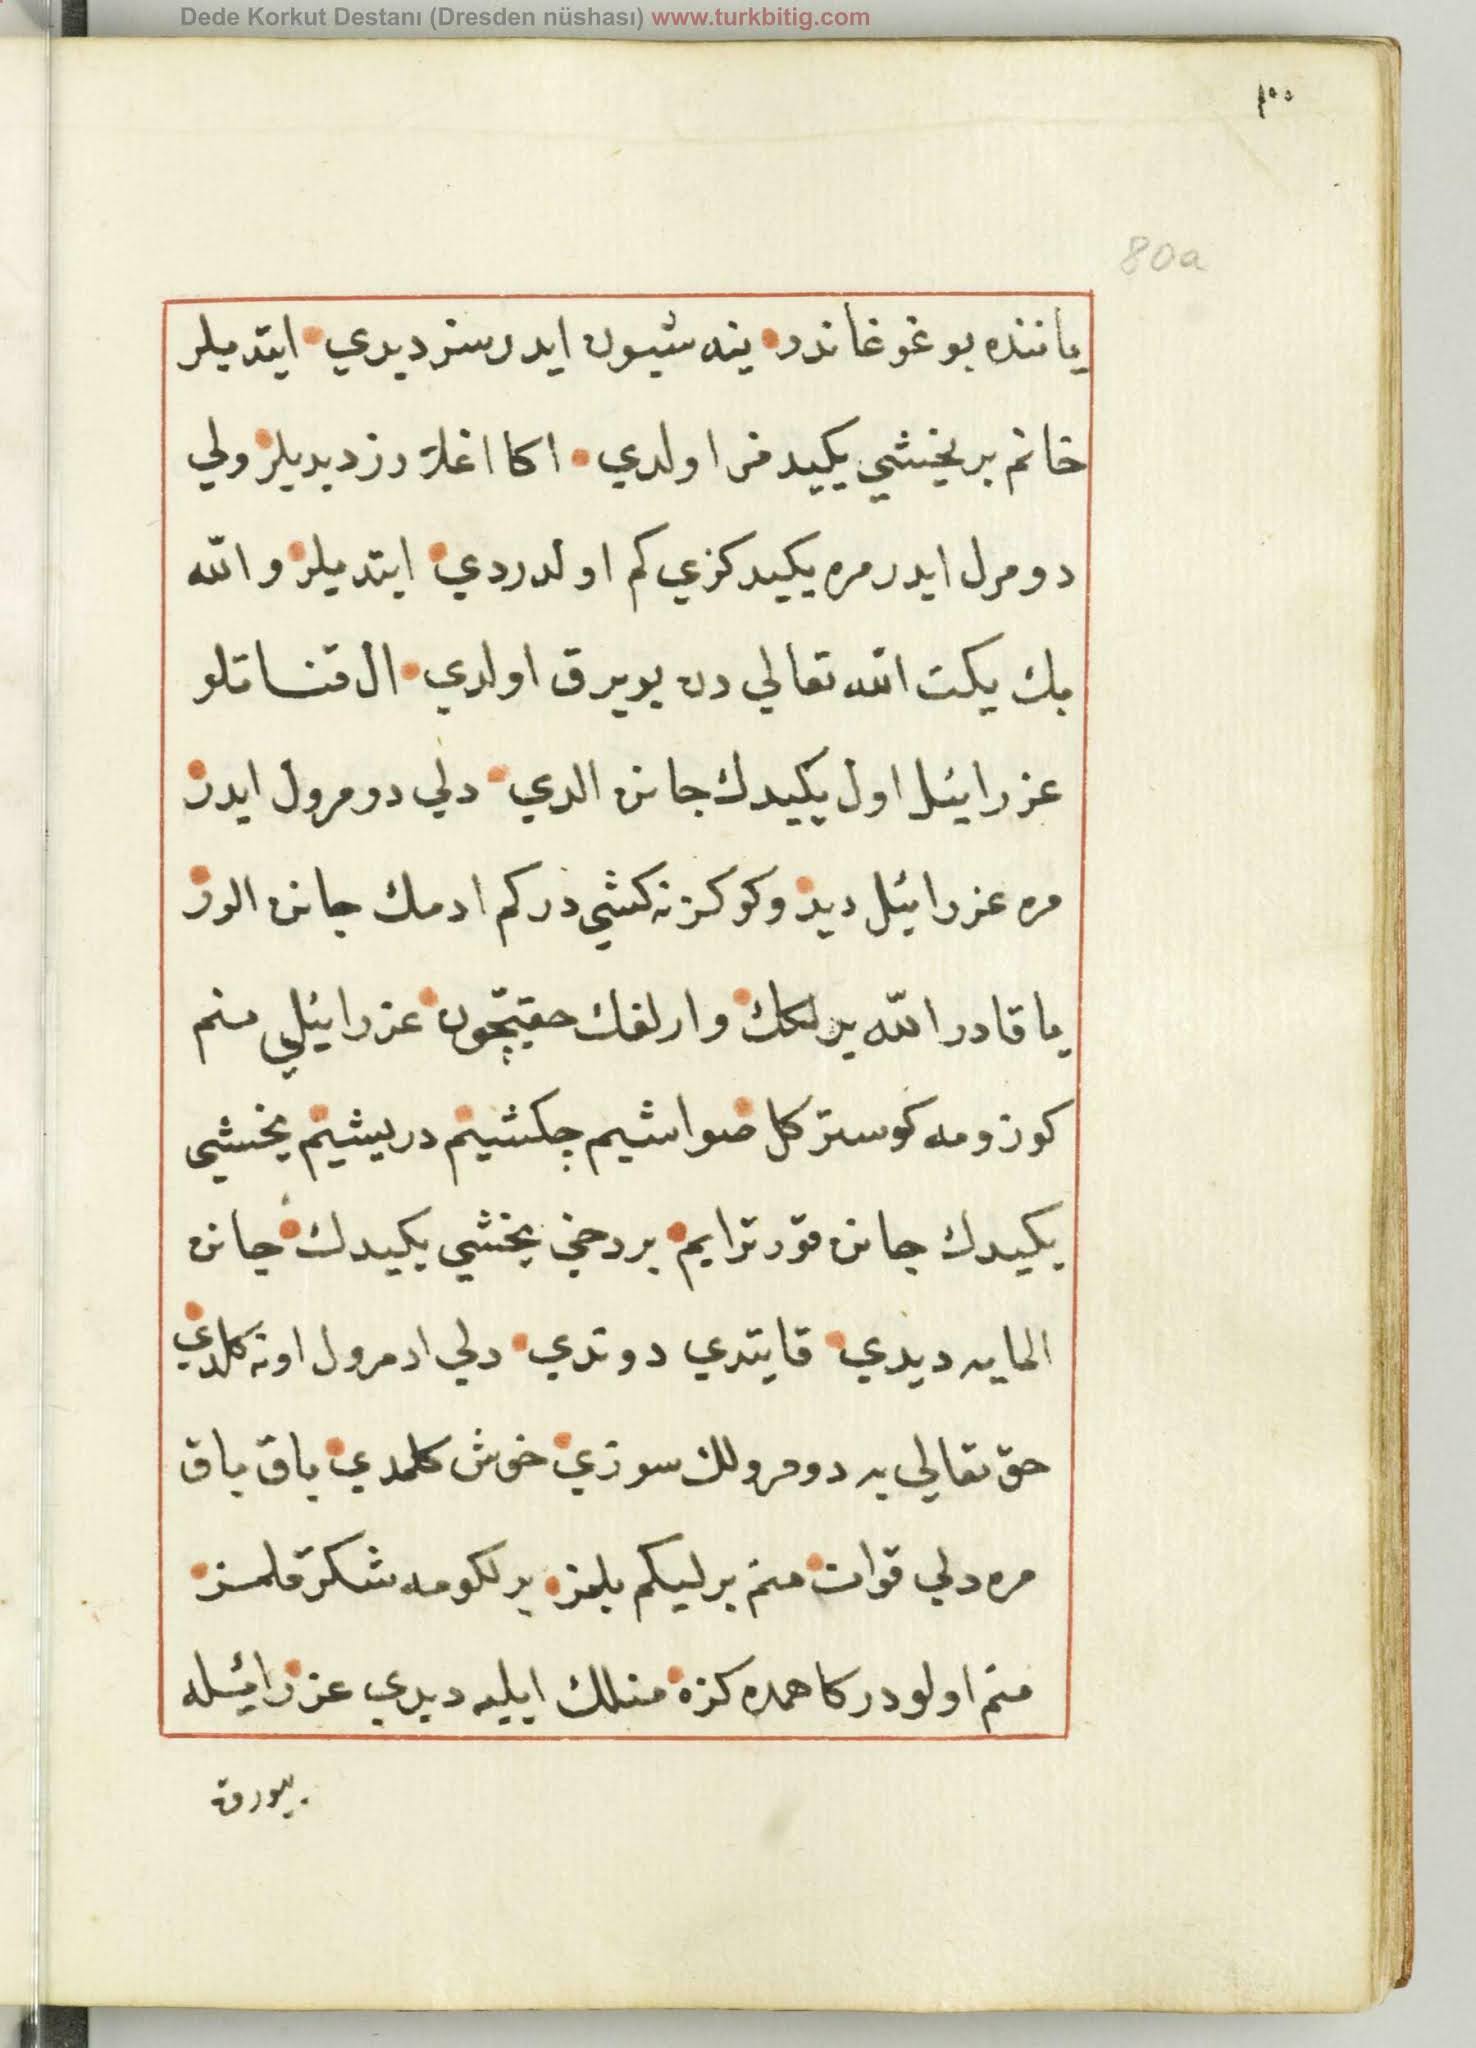 Dede Korkut Destanı (Dresden nüshası) www.turkbitig.com
80a
ياننده بو غوغا ندر ينه شيون ايدرسز ديدي ايتديلر
خانم بر يخشي يكيدمز اولدي اكا اغلرز ديديلر ولي
دومرل ايدر مره يكيدكزي كم اولدردي ايتديلر والله
بك يكت الله تعالي دن بويرق اولدي ال قناتلو
عزرائيل اول يكيدك جانن الدي دلي دومرول ايدر
مره عزرائيل ديدوكوكز نه كشي در كم ادمك جانن الور
يا قادر الله برلكك وارلغك حقيچون عزرائيلي منم
كوزومه كوستركل صواشيم چكشيم دريشيم يخشي
يكيدك جانن قورترايم بر دخي يخشي يكيدك جانن
المايه ديدي قايتدي دوندي دلي ادمرول اونه كلدي
حق تعالي يه دومرولك سوزي خوش كلمدي باق باق
مره دلي قوات منم برليكم بلمز برلكومه شكر قلمز
منم اولو دركاهمده كزه منلك ايليه ديدي عزرائيله
بيورق